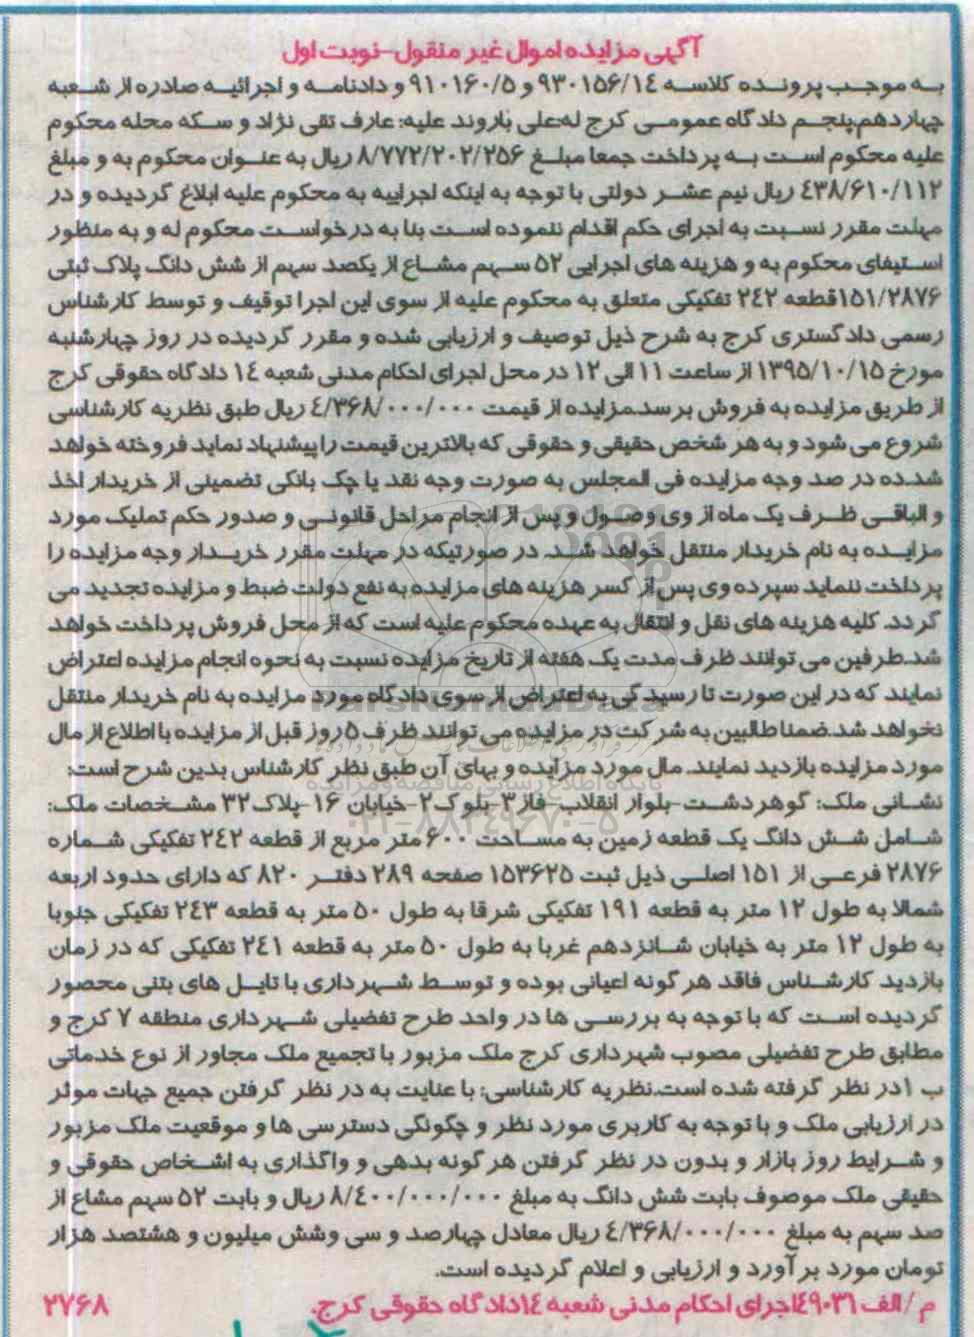 آگهی مزایده اموال غیر منقول-نوبت اول
به موجب پرونده کلاسه ۹۳۰۱۵۶/۱۴ و ۹۱۰۱۶۰/۵ و دادنامه و اجرائیه صادره از شعبه
چهاردهم،پنجم دادگاه عمومی کرج له:علی باروند علیه: عارف تقی نژاد و سکه محله محکوم
علیه محکوم است به پرداخت جمعا مبلغ ۸/۷۷۲/۲۰۲/۲۵۶ ریال به عنوان محکوم به و مبلغ
۴۳۸/۶۱۰/۱۱۲ ریال نیم عشر دولتی با توجه به اینکه اجراییه به محکوم علیه ابلاغ گردیده و در
مهلت مقرر نسبت به اجرای حکم اقدام ننموده است بنا به درخواست محکوم له و به منظور
استیفای محکوم به و هزینه های اجرایی ۵۲ سهم مشاع از یکصد سهم از شش دانگ پلاک ثبتی
۱۵۱/۲۸۷۶قطعه ۲۴۲ تفکیکی متعلق به محکوم علیه از سوی این اجرا توقیف و توسط کارشناس
رسمی دادگستری کرج به شرح ذیل توصیف و ارزیابی شده و مقرر گردیده در روز چهارشنبه
مورخ ۱۳۹۵/۱۰/۱۵ از ساعت ۱۱ الی ۱۲ در محل اجرای احکام مدنی شعبه ۱۴ دادگاه حقوقی کرج
از طریق مزایده به فروش برسد.مزایده از قیمت ۴/۳۶۸/۰۰۰/۰۰۰ ریال طبق نظریه کارشناسی
شروع می شود و به هر شخص حقیقی و حقوقی که بالاترین قیمت را پیشنهاد نماید فروخته خواهد
شد.ده در صد وجه مزایده فی المجلس به صورت وجه نقد یا چک بانکی تضمینی از خریدار اخذ
و الباقی ظرف یک ماه از وی وصول و پس از انجام مراحل قانونی و صدور حکم تملیک مورد
مزایده به نام خریدار منتقل خواهد شد. در صورتیکه در مهلت مقرر خریدار وجه مزایده را
پرداخت ننماید سپرده وی پس از کسر هزینه های مزایده به نفع دولت ضبط و مزایده تجدید می
گردد. کلیه هزینه های نقل و انتقال به عهده محکوم علیه است که از محل فروش پرداخت خواهد
شد.طرفین می توانند ظرف مدت یک هفته از تاریخ مزایده نسبت به نحوه انجام مزایده اعتراض
نمایند که در این صورت تا رسیدگی به اعتراض از سوی دادگاه مورد مزایده به نام خریدار منتقل
نخواهد شد.ضمنا طالبین به شرکت در مزایده می توانند ظرف ۵ روز قبل از مزایده با اطلاع از مال
مورد مزایده بازدید نمایند. مال مورد مزایده و بهای آن طبق نظر کارشناس بدین شرح است:
نشانی ملک: گوهردشت-بلوار انقلاب-فاز۳-بلوک۲-خیابان ۱۶-پلاک۳۲ مشخصات ملک:
شامل شش دانگ یک قطعه زمین به مساحت ۶۰۰ متر مربع از قطعه ۲۴۲ تفکیکی شماره
۲۸۷۶ فرعی از ۱۵۱ اصلی ذیل ثبت ۱۵۳۶۲۵ صفحه ۲۸۹ دفتر ۸۲۰ که دارای حدود اربعه
شمالا به طول ۱۲ متر به قطعه ۱۹۱ تفکیکی شرقا به طول ۵۰ متر به قطعه ۲۴۳ تفکیکی جنوبا
به طول ۱۲ متر به خیابان شانزدهم غربا به طول ۵۰ متر به قطعه ۲۴۱ تفکیکی که در زمان
بازدید کارشناس فاقد هر گونه اعیانی بوده و توسط شهرداری با تایل های بتنی محصور
گردیده است که با توجه به بررسی ها در واحد طرح تفضیلی شهرداری منطقه ۷ کرج و
مطابق طرح تفضیلی مصوب شهرداری کرج ملک مزبور با تجمیع ملک مجاور از نوع خدماتی
ب ۱در نظر گرفته شده است.نظریه کارشناسی: با عنایت به در نظر گرفتن جمیع جهات موثر
در ارزیابی ملک و با توجه به کاربری مورد نظر و چگونگی دسترسی ها و موقعیت ملک مزبور
و شرایط روز بازار و بدون در نظر گرفتن هر گونه بدهی و واگذاری به اشخاص حقوقی و
حقیقی ملک موصوف بابت شش دانگ به مبلغ ۸/۴۰۰/۰۰۰/۰۰۰ ریال و بابت ۵۲ سهم مشاع از
صد سهم به مبلغ ۴/۳۶۸/۰۰۰/۰۰۰ ریال معادل چهارصد و سی وشش میلیون و هشتصد هزار
تومان مورد برآورد و ارزیابی و اعلام گردیده است.
م/الف ۴۹۰۳۱اجرای احکام مدنی شعبه ۱۴دادگاه حقوقی کرج. ۲۷۶۸